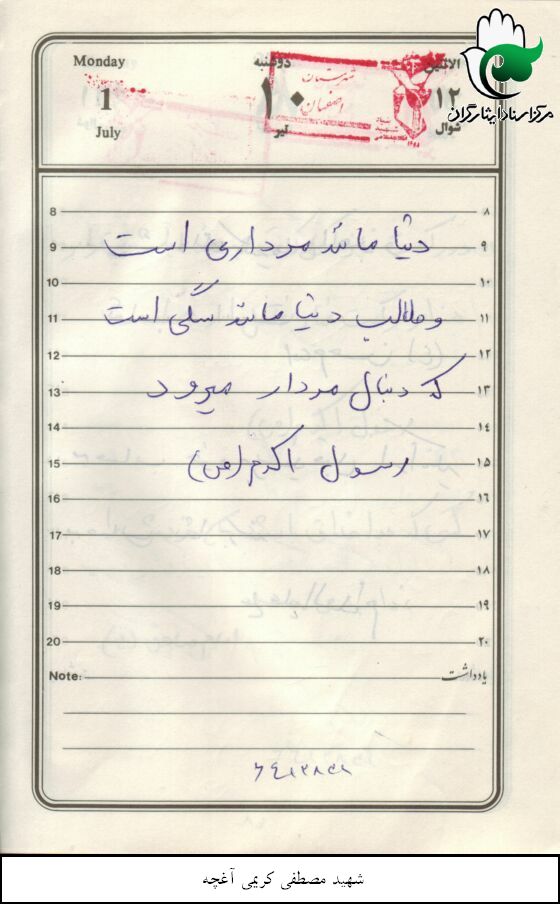 مرکز اسناد ایثارگران
Monday دوشنبه الاثنین
1 ۱۰ ۱۲
July تیر شوال
شهرستان
اصفهان
8 ۸
9 دنیا مانند مرداری است ۹
10 ۱۰
11 و طالب دنیا مانند سگی است ۱۱
12 ۱۲
13 که دنبال مردار میرود ۱۳
14 ۱۴
15 رسول اکرم (ص) ۱۵
16 ۱۶
17 ۱۷
18 ۱۸
19 ۱۹
20 ۲۰
Note: یادداشت
شهید مصطفی کریمی آغچه